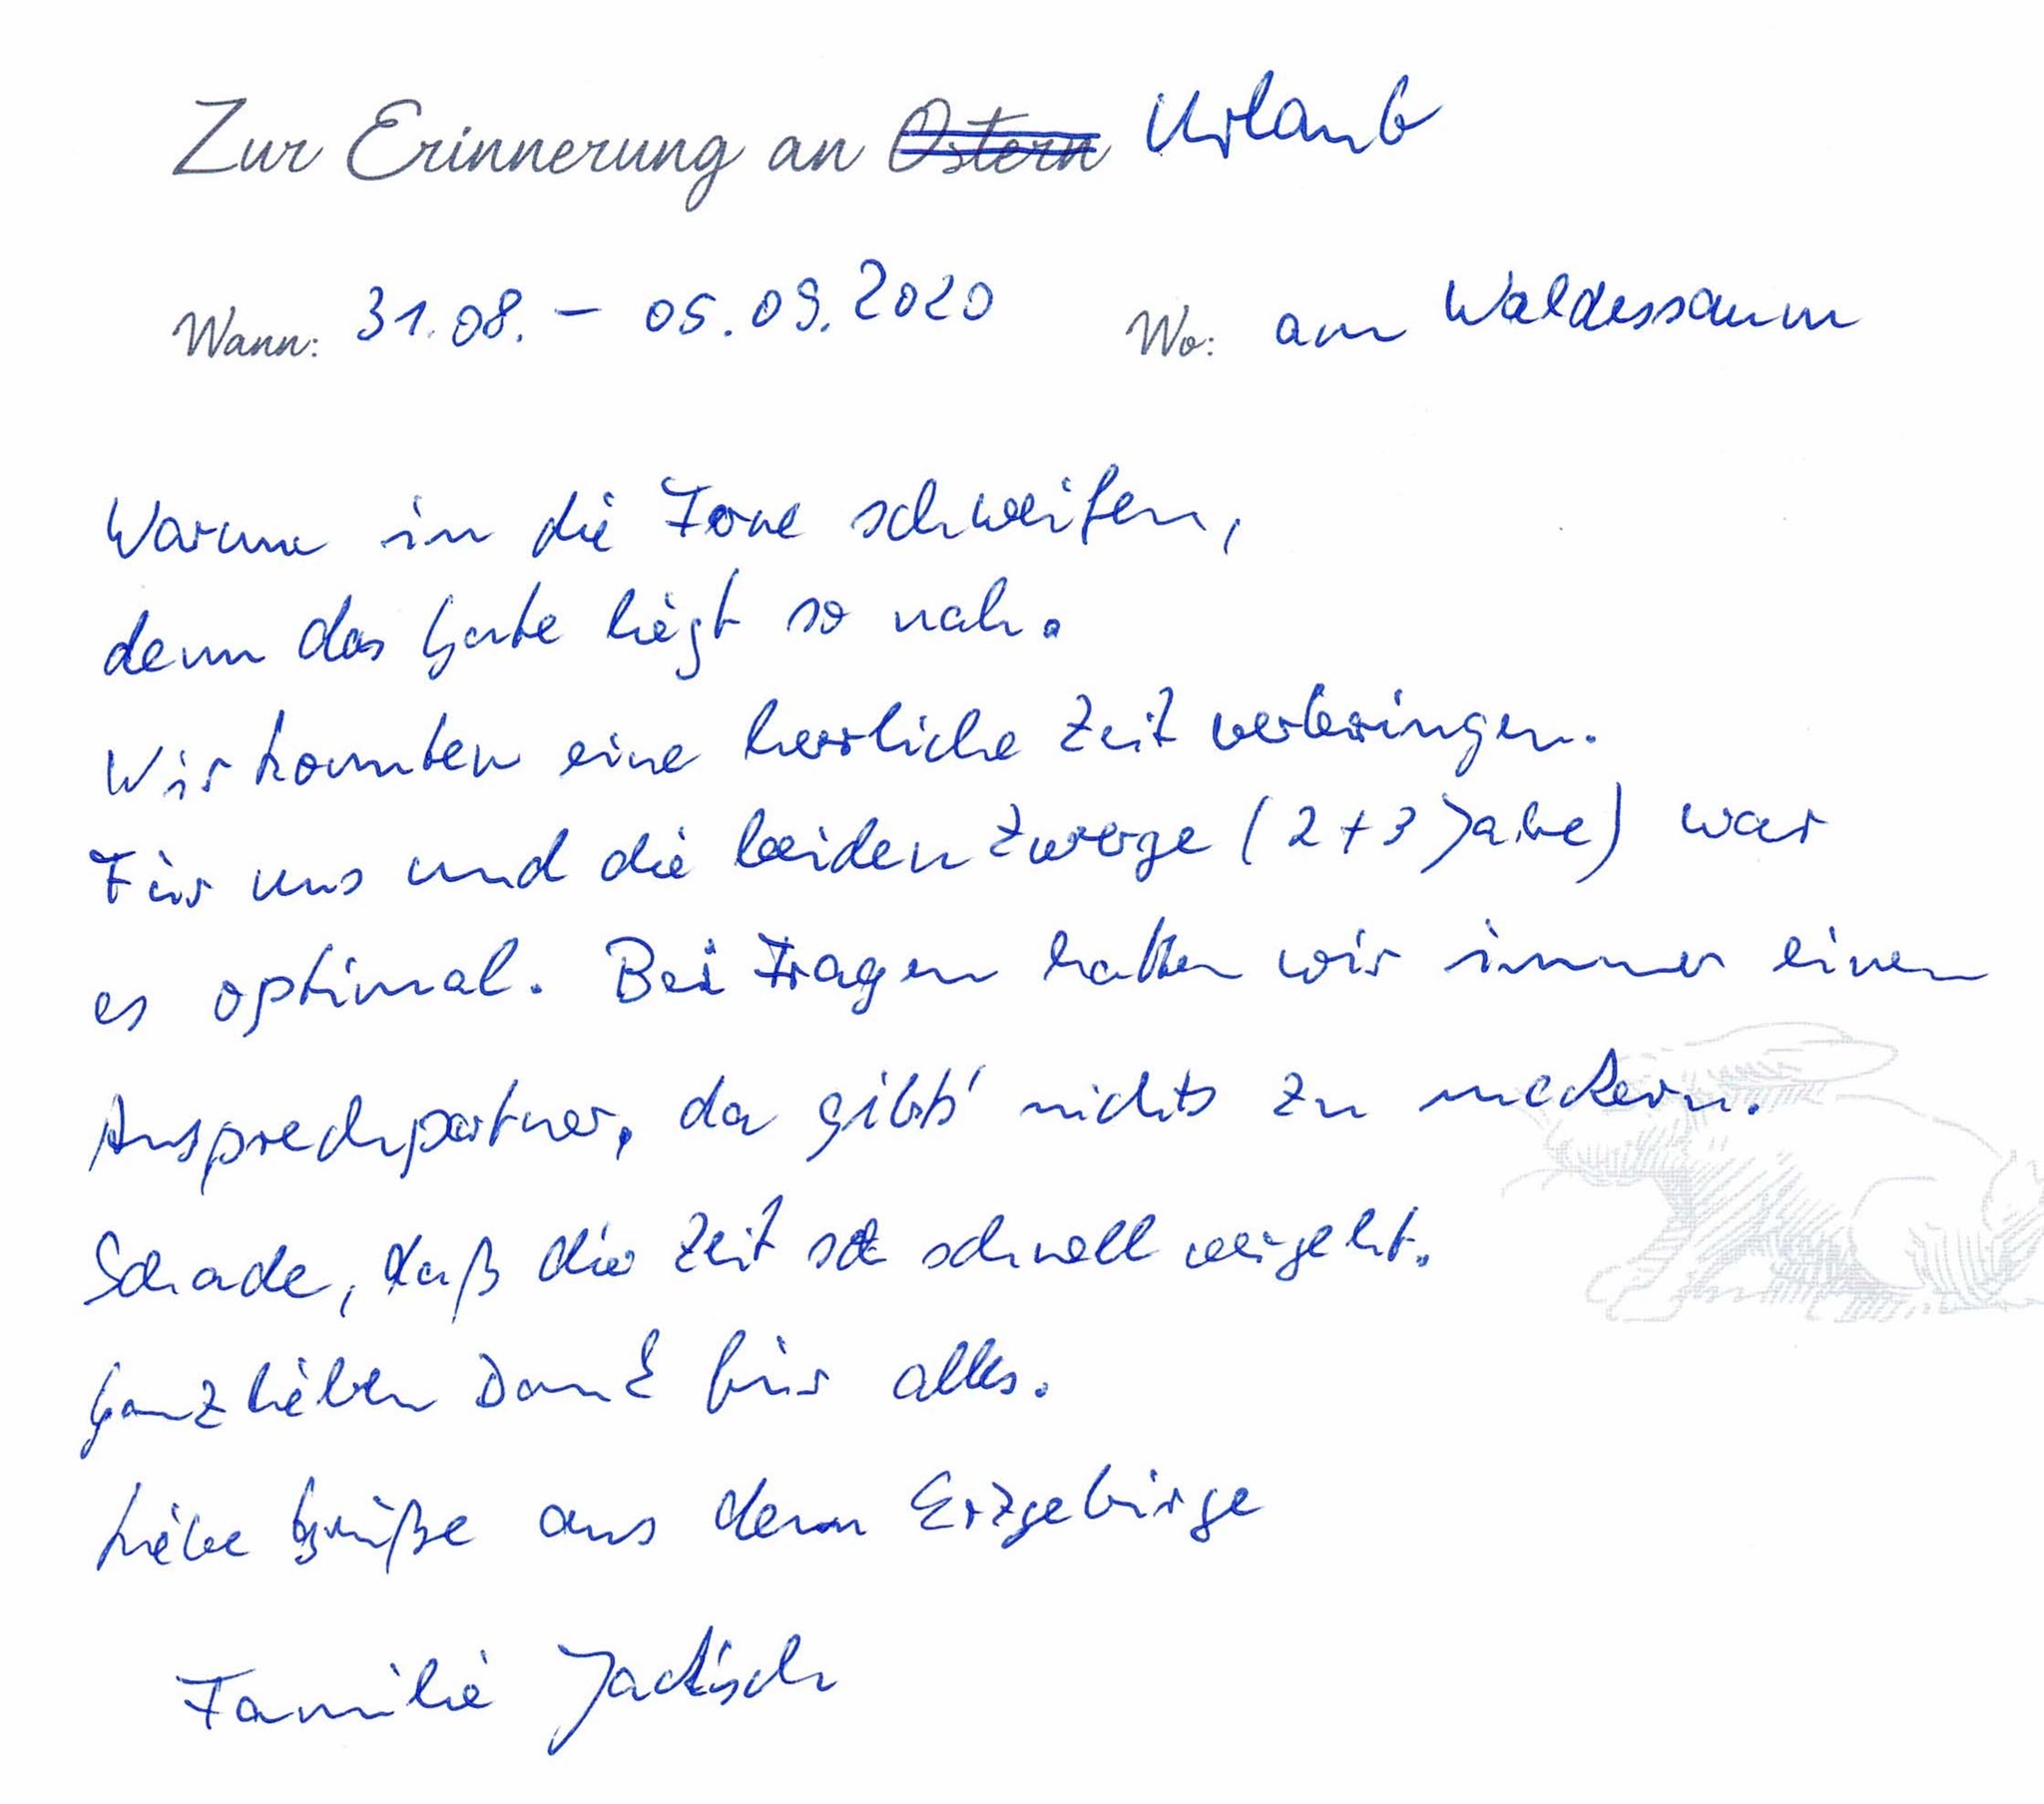 Zur Erinnerung an Ostern Urlaub
Wann: 31.08. – 05.09.2020 Wo: am Waldessaum
Warum in die Ferne schweifen,
denn das Gute liegt so nah.
Wir konnten eine herrliche Zeit verbringen.
Für uns und die beiden Zwerge (2+3 Jahre) war
es optimal. Bei Fragen hatten wir immer einen
Ansprechpartner, da gibts' nichts zu meckern.
Schade, daß die Zeit so schnell vergeht.
Ganz lieben Dank für alles.
Liebe Grüße aus dem Erzgebirge
Familie Jackisch